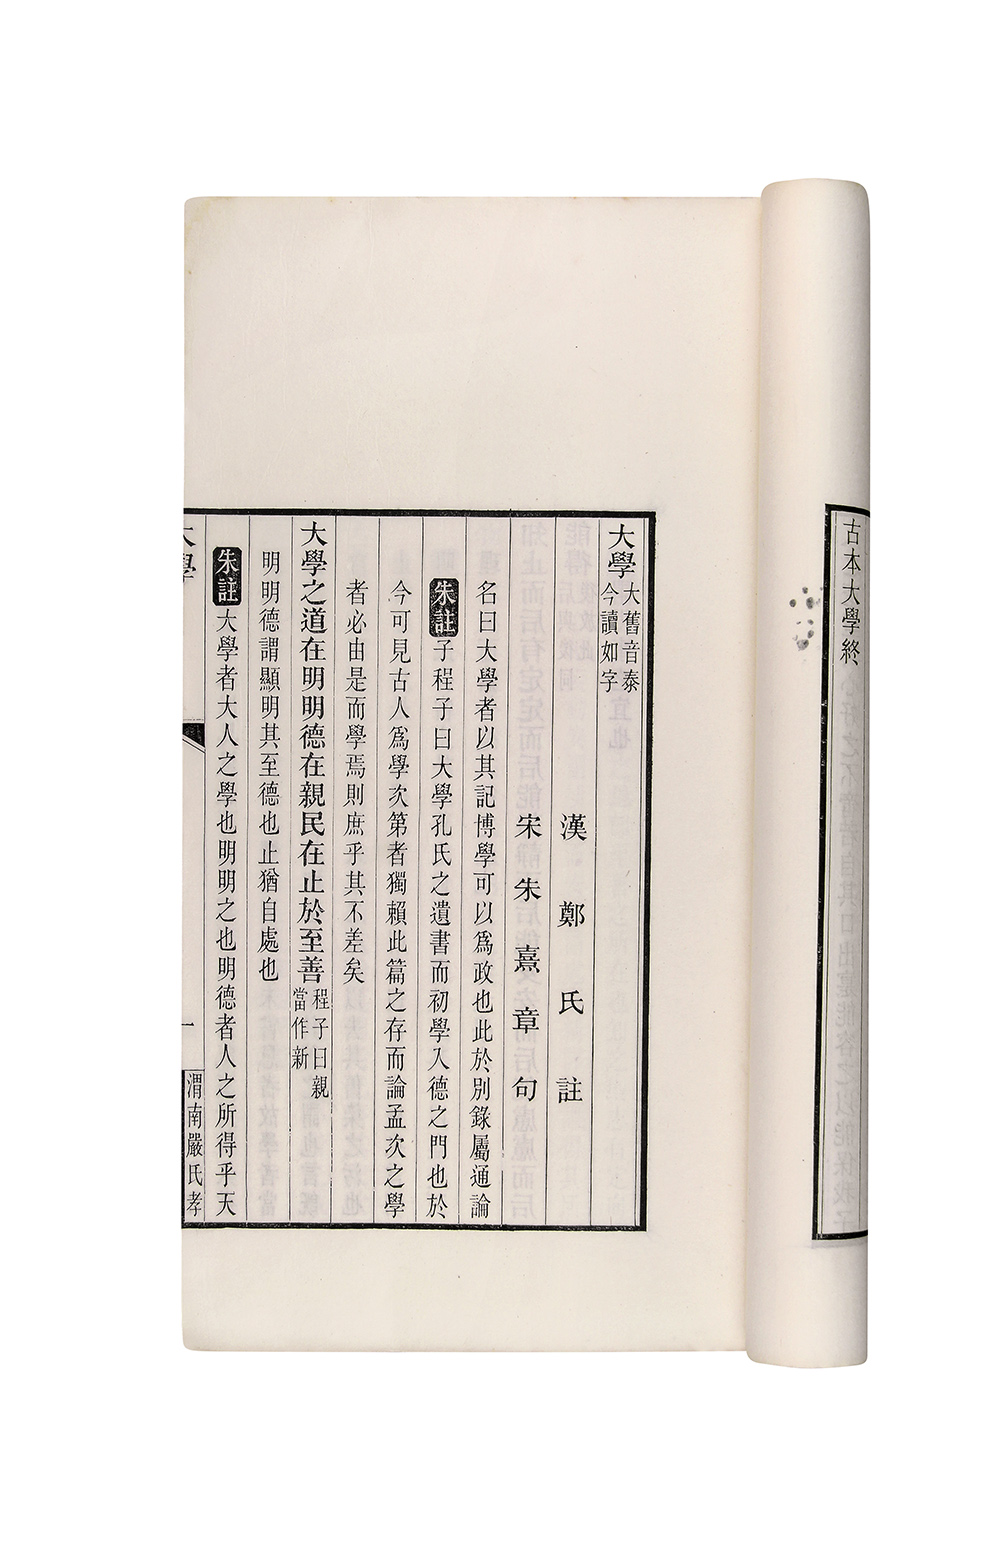 古本大學終
大學大舊音泰今讀如字
漢鄭氏註
宋朱熹章句
名曰大學者以其記博學可以爲政也此於別錄屬通論
朱註子程子曰大學孔氏之遺書而初學入德之門也於
今可見古人爲學次第者獨賴此篇之存而論孟次之學
者必由是而學焉則庶乎其不差矣
大學之道在明明德在親民在止於至善程子曰親當作新
明明德謂顯明其至德也止猶自處也
朱註大學者大人之學也明明之也明德者人之所得乎天
大學
一
渭南嚴氏孝